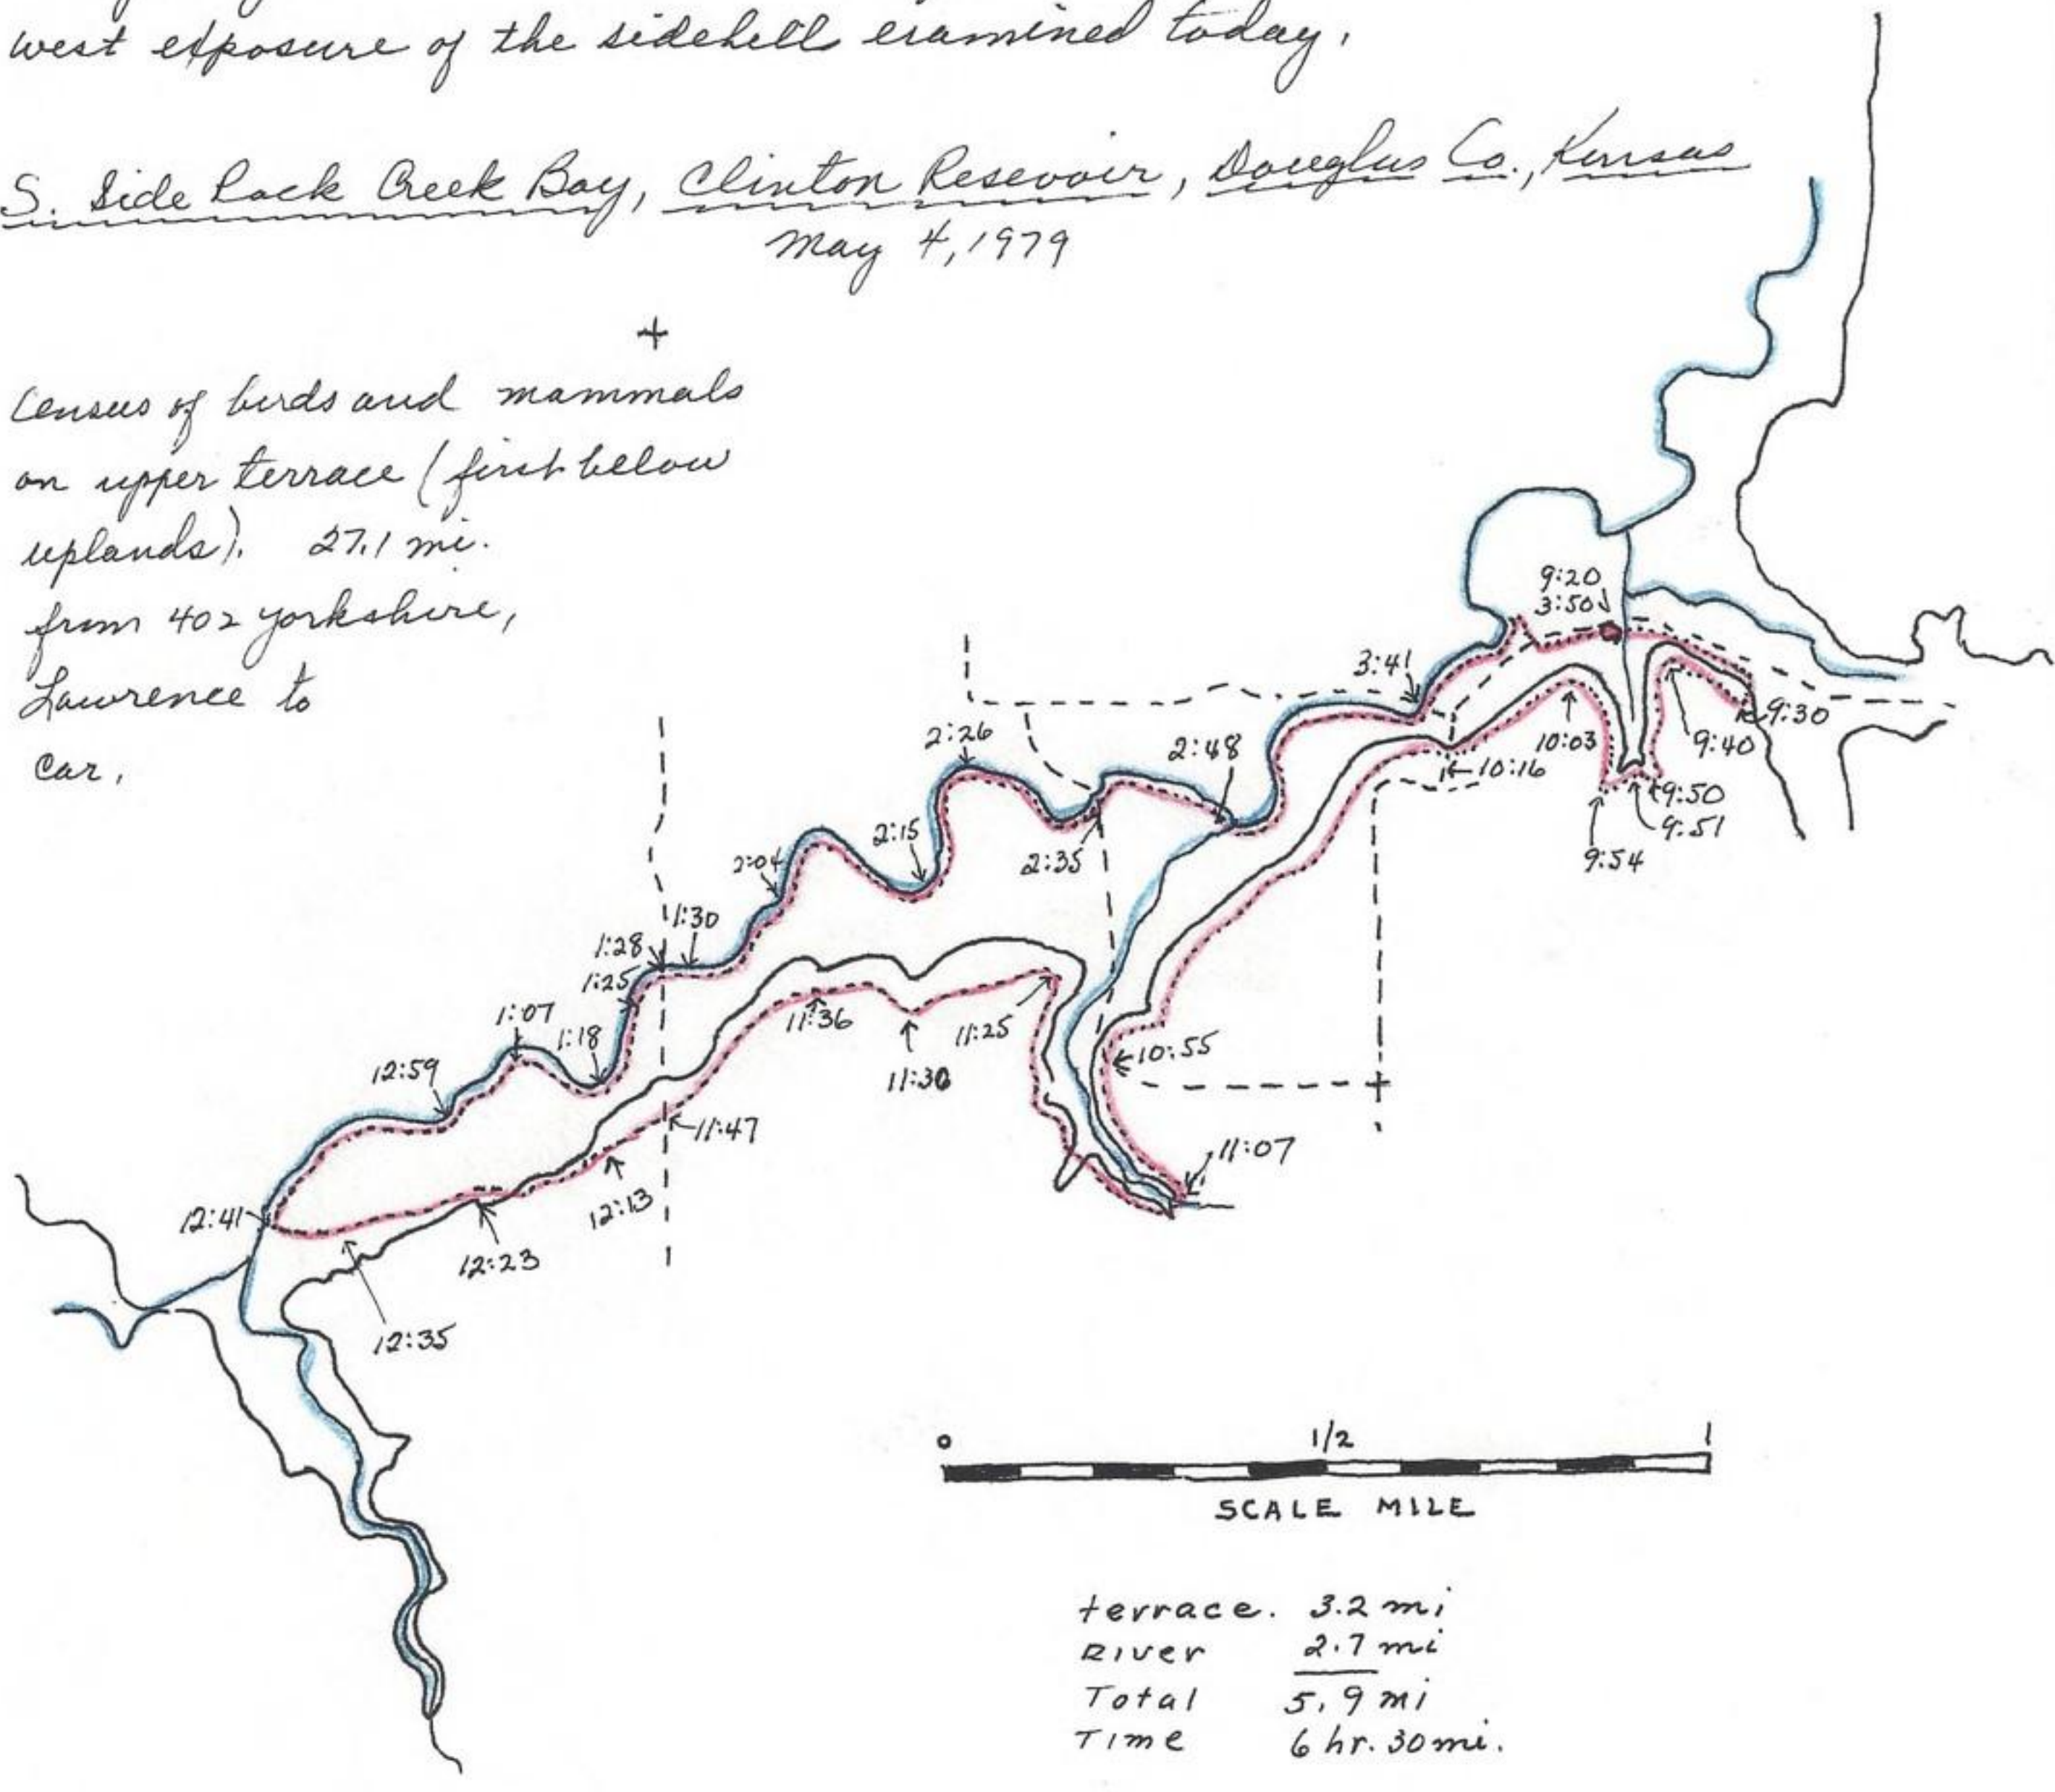 west exposure of the sidehill examined today.
S. Side Rock Creek Bay, Clinton Resevoir, Douglas Co., Kansas
May 4, 1979
+
Census of birds and mammals
on upper terrace (first below
uplands). 27.1 mi.
from 402 yorkshire,
Lawrence to
car.
9:20
3:50
3:41
9:30
2:26
2:48
10:03
9:40
10:16
9:50
9:51
2:15
2:35
9:54
2:04
1:30
1:28
1:25
1:07
1:18
11:36
11:25
10:55
12:59
11:30
11:47
11:07
12:41
12:13
12:23
12:35
0 1/2 1
SCALE MILE
terrace. 3.2 mi
River 2.7 mi
Total 5.9 mi
Time 6 hr. 30 mi.